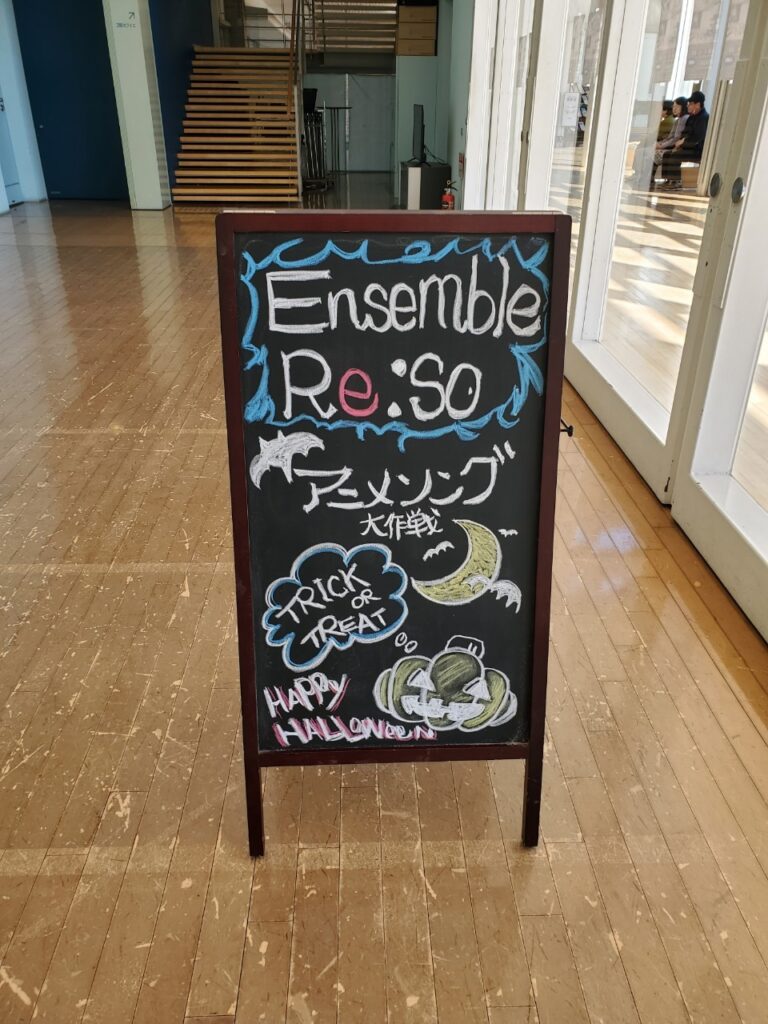 Ensemble
Re:so
アニメソング
大作戦
TRICK
OR
TREAT
HAPPY
HALLOWEEN